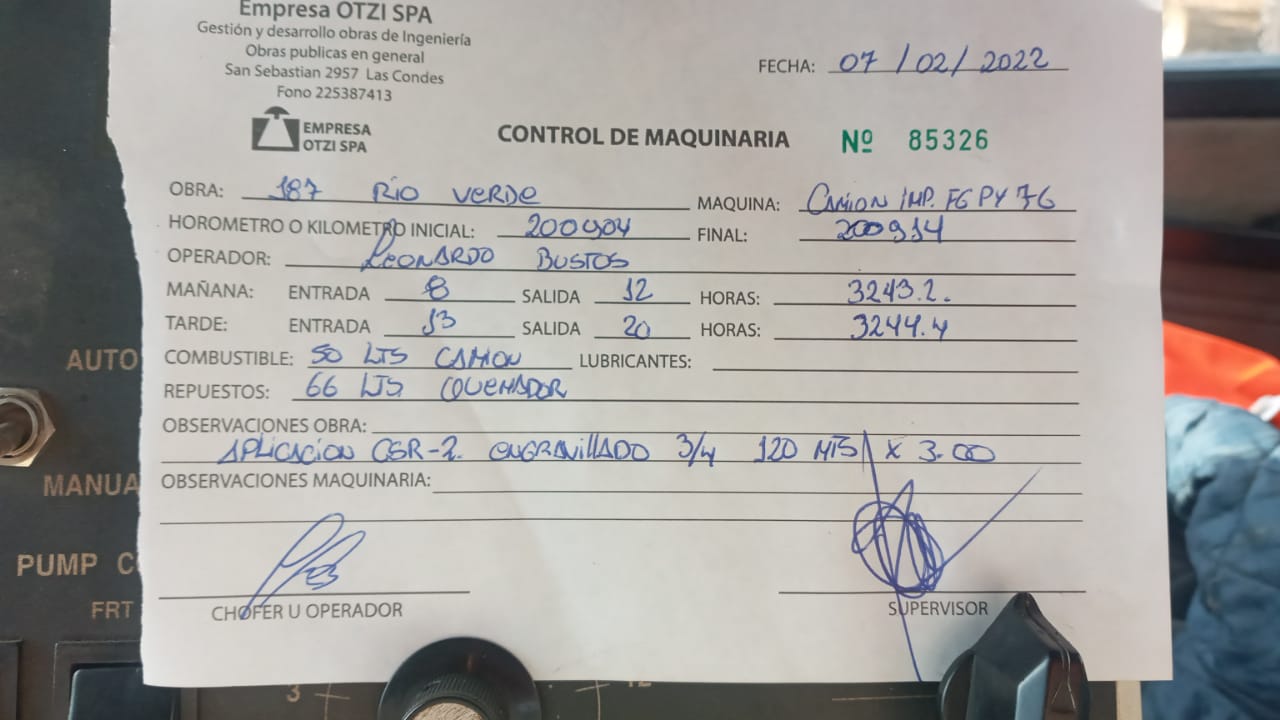 Empresa OTZI SPA
Gestión y desarrollo obras de Ingeniería
Obras publicas en general
San Sebastian 2957 Las Condes
Fono 225387413
FECHA: 07/02/2022
EMPRESA
OTZI SPA
CONTROL DE MAQUINARIA Nº 85326
OBRA: 187 RIO VERDE MAQUINA: CAMION IMP. FGPY 76
HOROMETRO O KILOMETRO INICIAL: 200904 FINAL: 200914
OPERADOR: LEONARDO BUSTOS
MAÑANA: ENTRADA 8 SALIDA 12 HORAS: 3243.2.
TARDE: ENTRADA 13 SALIDA 20 HORAS: 3244.4
COMBUSTIBLE: 50 LTS CAMION LUBRICANTES:
REPUESTOS: 66 LTS QUEMADOR
OBSERVACIONES OBRA:
APLICACION CSR-2. ENGRAVILLADO 3/4 120 MTS X 3.00
OBSERVACIONES MAQUINARIA:
CHOFER U OPERADOR SUPERVISOR
AUTO
MANUA
PUMP C
FRT
3